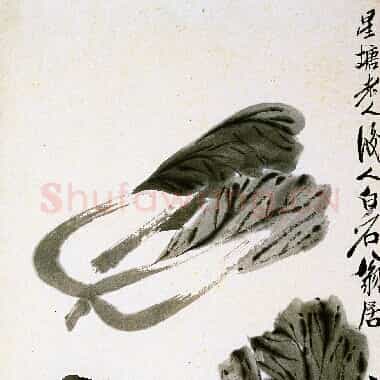 星塘老人後人白石翁居
Shufawu.CN